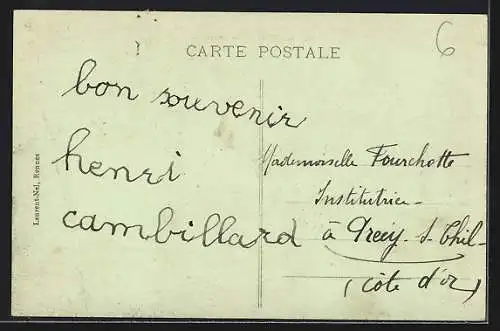 CARTE POSTALE
6
bon souvenir
henri
cambillard
Mademoiselle Fourchotte
Institutrice
à Précy s. Thil
(côte d'or)
Laurent-Nel, Rennes